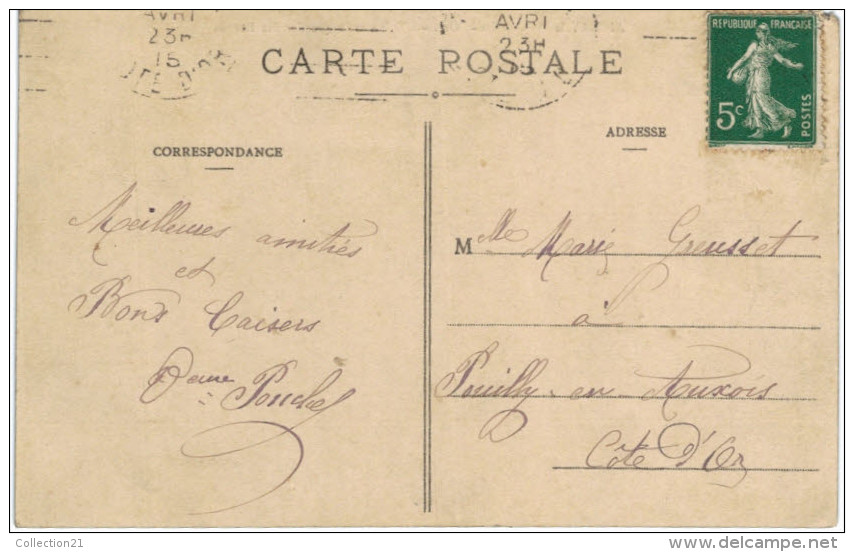 AVRI
23H
15
AVRI
23H
CARTE POSTALE
REPUBLIQUE FRANÇAISE
5c
POSTES
CORRESPONDANCE
ADRESSE
Meilleures amitiés
et
Bons baisers
Mlle Marie Greusset
à
Pouilly-en-Auxois
Côte d'Or
Collection21
www.delcampe.net